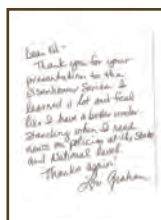 Dear Ed-
Thank you for your
presentation to the
Eisenhower Series. I
learned a lot and feel
like I have a better under-
standing when I read
news on policing at the State
and National level.
Thanks again!
Lori Graham